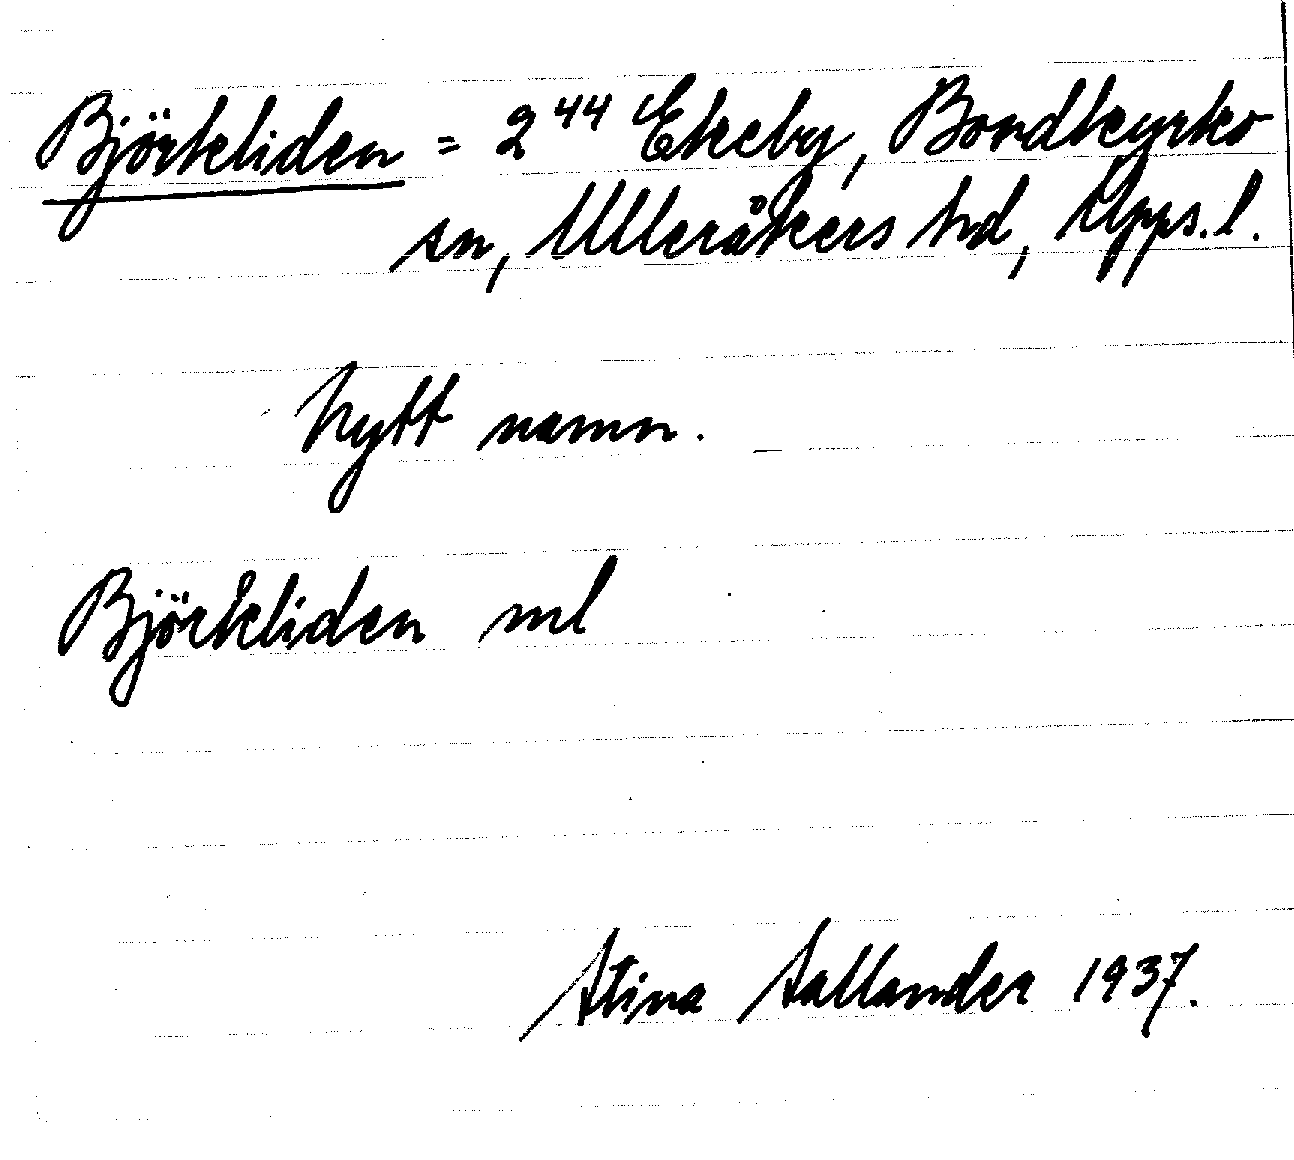 Björkliden = 2⁴⁴ Ekeby, Bondkyrko
sn, Ulleråkers hd, Upps. l.
Nytt namn.
Björkliden ml
Stina Sallander 1937.